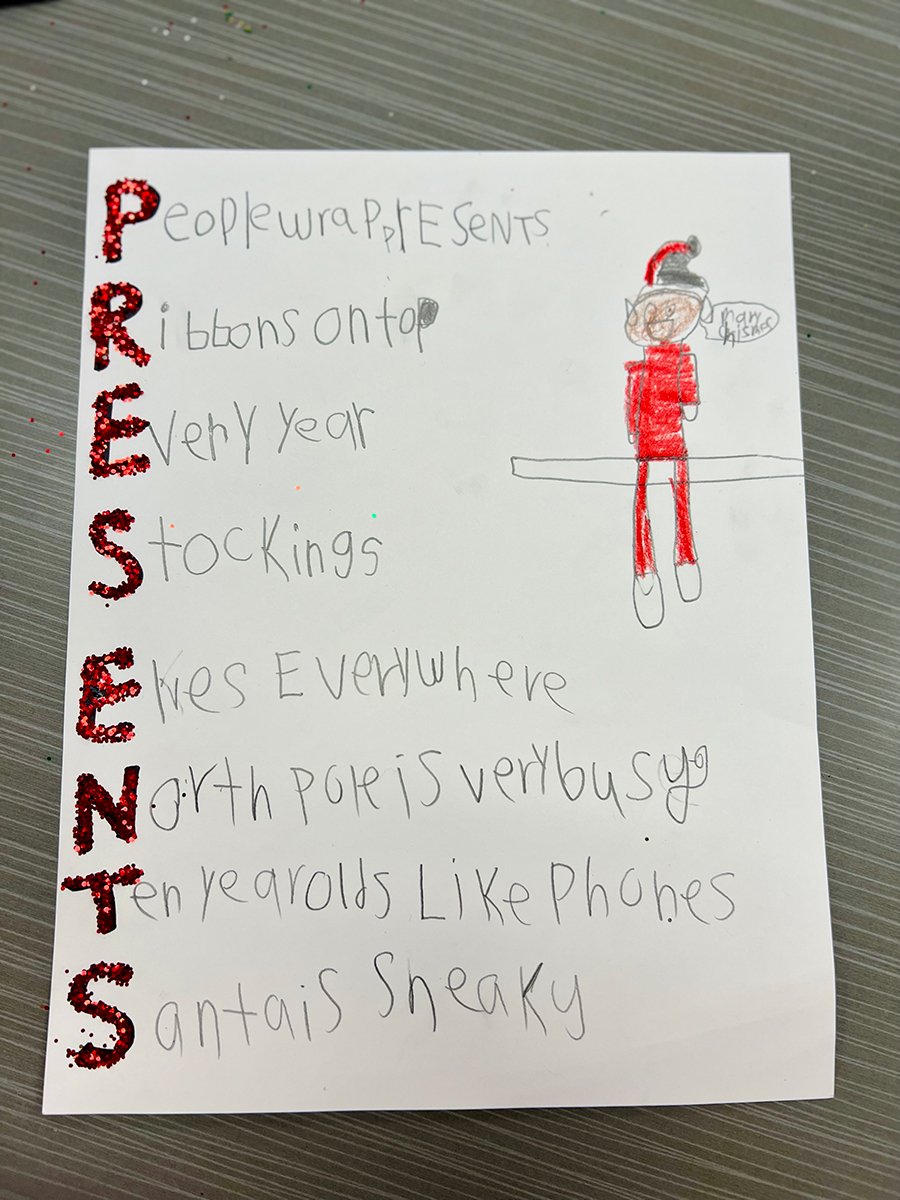 People wrap prESENTS
Ribbons on top
Every year
Stockings
Elves Everywhere
North pole is very busy
Ten year olds Like Phones
Santa is Sneaky
mary
chismes